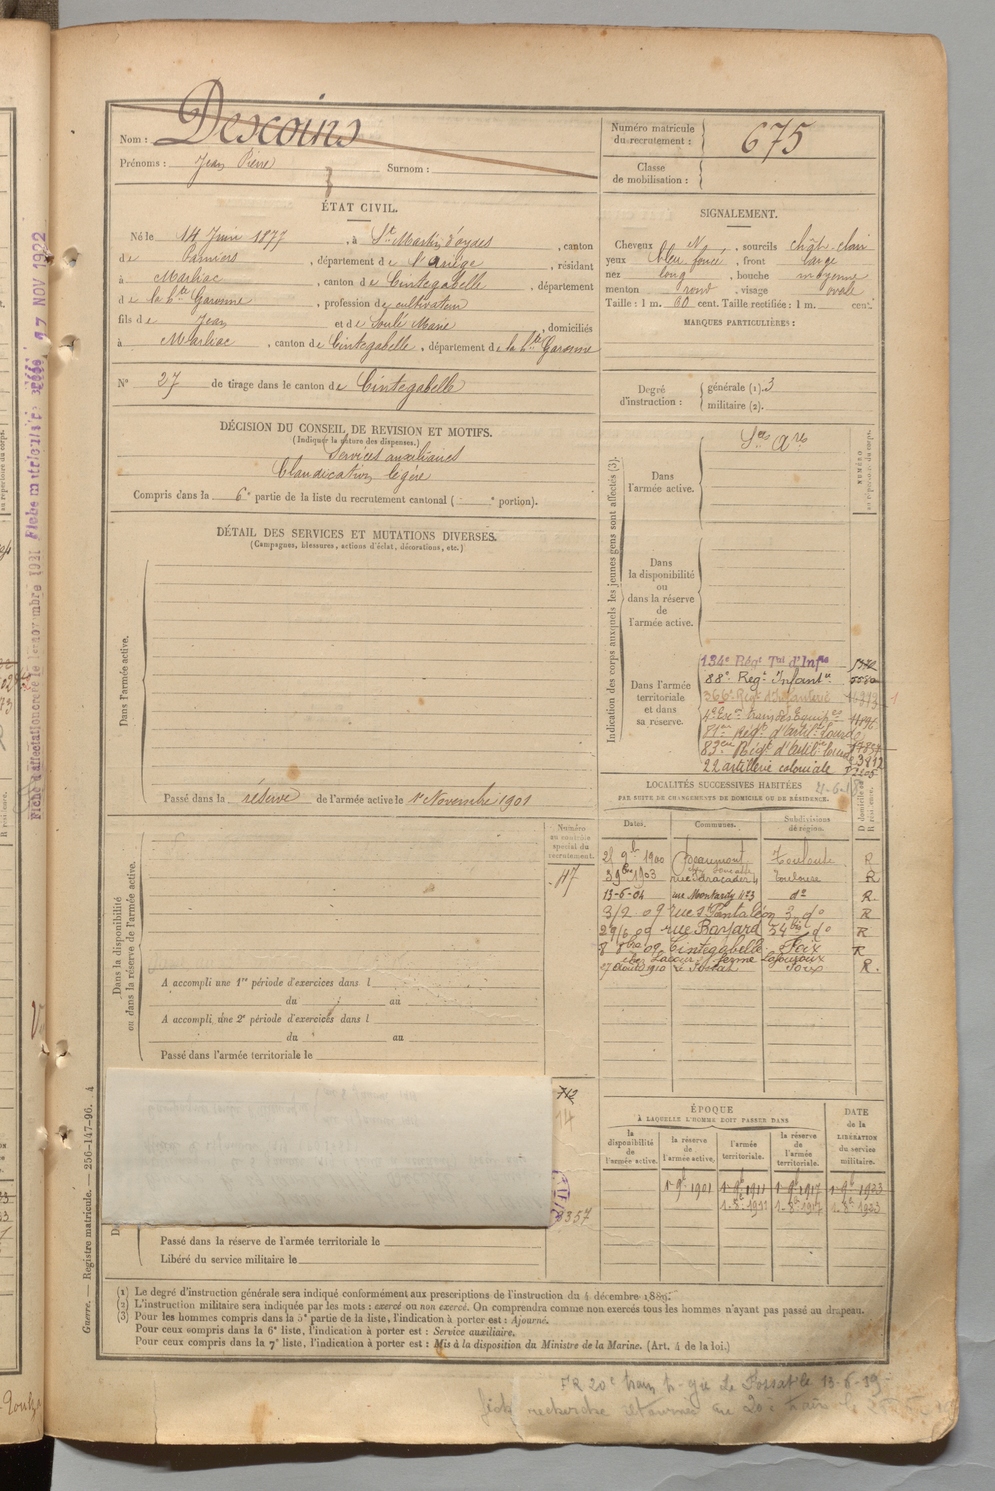 Nom : Descoins
Prénoms : Jean Pierre Surnom :
Numéro matricule du recrutement : 675
Classe de mobilisation :
ÉTAT CIVIL.
Né le 14 Juin 1877, à St Martin d'oydes, canton
de Pamiers, département de l'Ariège, résidant
à Marliac, canton de Cintegabelle, département
de la Hte Garonne, profession de cultivateur
fils de Jean et de Soulé Marie, domiciliés
à Marliac, canton de Cintegabelle, département de la Hte Garonne
No 27 de tirage dans le canton de Cintegabelle
DÉCISION DU CONSEIL DE REVISION ET MOTIFS.
(Indiquer la nature des dispenses.)
Services auxiliaires
Claudication légère
Compris dans la 6e partie de la liste du recrutement cantonal ( e portion).
SIGNALEMENT.
Cheveux N, sourcils chât. clair
yeux bleu foncé, front large
nez long, bouche moyenne
menton rond, visage ovale
Taille : 1 m. 60 cent. Taille rectifiée : 1 m. cent.
MARQUES PARTICULIÈRES :
Degré d'instruction :
générale (1). 3
militaire (2).
DÉTAIL DES SERVICES ET MUTATIONS DIVERSES.
(Campagnes, blessures, actions d'éclat, décorations, etc.)
Dans l'armée active.
Passé dans la réserve de l'armée active le 1er Novembre 1901
Indication des corps auxquels les jeunes gens sont affectés (3).
NUMÉRO au répertoire du corps.
Dans l'armée active.
Dans la disponibilité ou dans la réserve de l'armée active.
Dans l'armée territoriale et dans sa réserve.
134e Régt Tal d'Infie
88e Regt Infantie
366e Régt d'Infanterie
4e Escon train des Equip es
81me Régt d'Artilie Lourde
83eme Régt d'Artilie lourde
22 artillerie coloniale
LOCALITÉS SUCCESSIVES HABITÉES
PAR SUITE DE CHANGEMENTS DE DOMICILE OU DE RÉSIDENCE.
Dates. Communes. Subdivisions de région. D domicile ou R résidence.
21 9b 1900 Beaumont Toulouse R
3 9bre 1903 Toulouse R
13-6-04 rue Montardy No 3 do R
3/2 09 rue St Pantaléon 3 do R
29/6 09 rue Bayard 54bis do R
8 8bre 09 Cintegabelle Foix R
27 Août 1910 Le Fossat Foix R.
Numéro au contrôle spécial du recrutement.
47
Dans la disponibilité ou dans la réserve de l'armée active.
A accompli une 1re période d'exercices dans l
du au
A accompli une 2e période d'exercices dans l
du au
Passé dans l'armée territoriale le
712
14
357
Passé dans la réserve de l'armée territoriale le
Libéré du service militaire le
ÉPOQUE
A LAQUELLE L'HOMME DOIT PASSER DANS
la disponibilité de l'armée active. la réserve de l'armée active. l'armée territoriale. la réserve de l'armée territoriale. DATE de la LIBÉRATION du service militaire.
1 9b 1901 1 9b 1911 1 9b 1917 1 9b 1923
1. 8b 1911 1. 8b 1917 1. 8b 1923
(1) Le degré d'instruction générale sera indiqué conformément aux prescriptions de l'instruction du 4 décembre 1889.
(2) L'instruction militaire sera indiquée par les mots : exercé ou non exercé. On comprendra comme non exercés tous les hommes n'ayant pas passé au drapeau.
(3) Pour les hommes compris dans la 5e partie de la liste, l'indication à porter est : Ajourné.
Pour ceux compris dans la 6e liste, l'indication à porter est : Service auxiliaire.
Pour ceux compris dans la 7e liste, l'indication à porter est : Mis à la disposition du Ministre de la Marine. (Art. 4 de la loi.)
Guerre. — Registre matricule. — 256-147-96. A